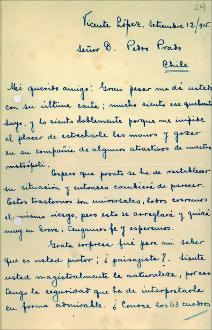 29
Vicente López, Setiembre 12/925.
Señor D. Pedro Prado
Chile
Mi querido amigo: Gran pesar me dá usted
con su última carta; mucho siento ese quebranto
suyo, y lo siento doblemente porque me impide
el placer de estrecharle las manos y gozar
en su compañía de algunos atractivos de nuestra
metrópoli.
Espero que pronto se ha de restablecer
su situación y entonces cambiará de parecer.
Estos trastornos son universales; todos corremos
el mismo riesgo, pero esto se arreglará y quizá
muy en breve; tengamos fe y esperemos.
Grata sorpresa fué para mí saber
que es usted pintor; ¿paisajista?. Siente
usted magistralmente la naturaleza, por eso
tengo la seguridad que ha de interpretarla
en forma admirable. ¿Conoce los 43 cuadros